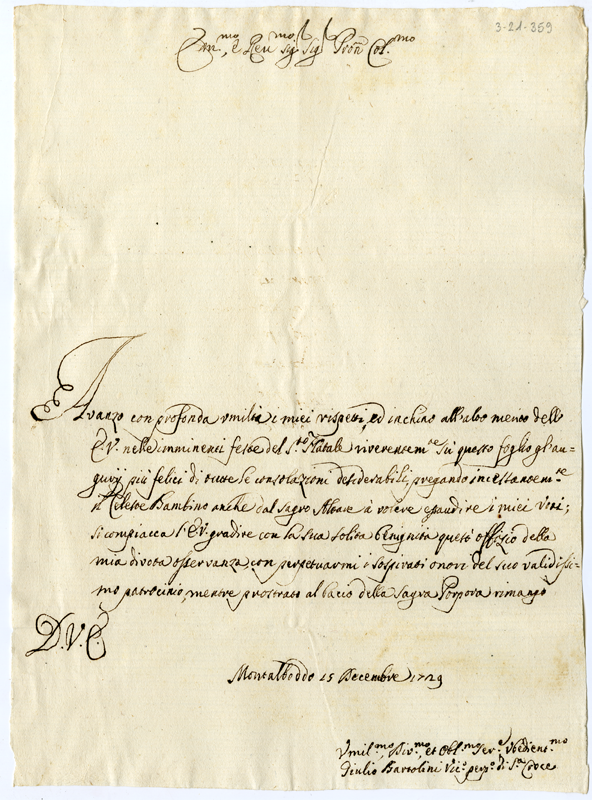 3-21-359
Em.mo, e Rev.mo Sig. Sig. Pron Col.mo
Avanzo con profonda umiltà i miei rispetti, ed inchino all'alto merito dell'
E.V. nelle imminenti feste del S.to Natale riverentem.te su questo foglio gl'au=
gurij più felici di tutte le consolazioni desiderabili, pregando incessantem.te
il Celeste Bambino anche dal sagro Altare à volere esaudire i miei voti;
si compiacca l'E.V. gradire con la sua solita benignità questo offizio della
mia divota osservanza con perpetuarmi i sospirati onori del suo validissi=
mo patrocinio, mentre prostrato al bacio della sagra Porpora rimango
D.V.E.
Montalboddo 15 Decembre 1729
Umil.mo, Div.mo, et Obl.mo Ser.e Ubedient.mo
Giulio Bartolini Vic.o di S.ta Croce